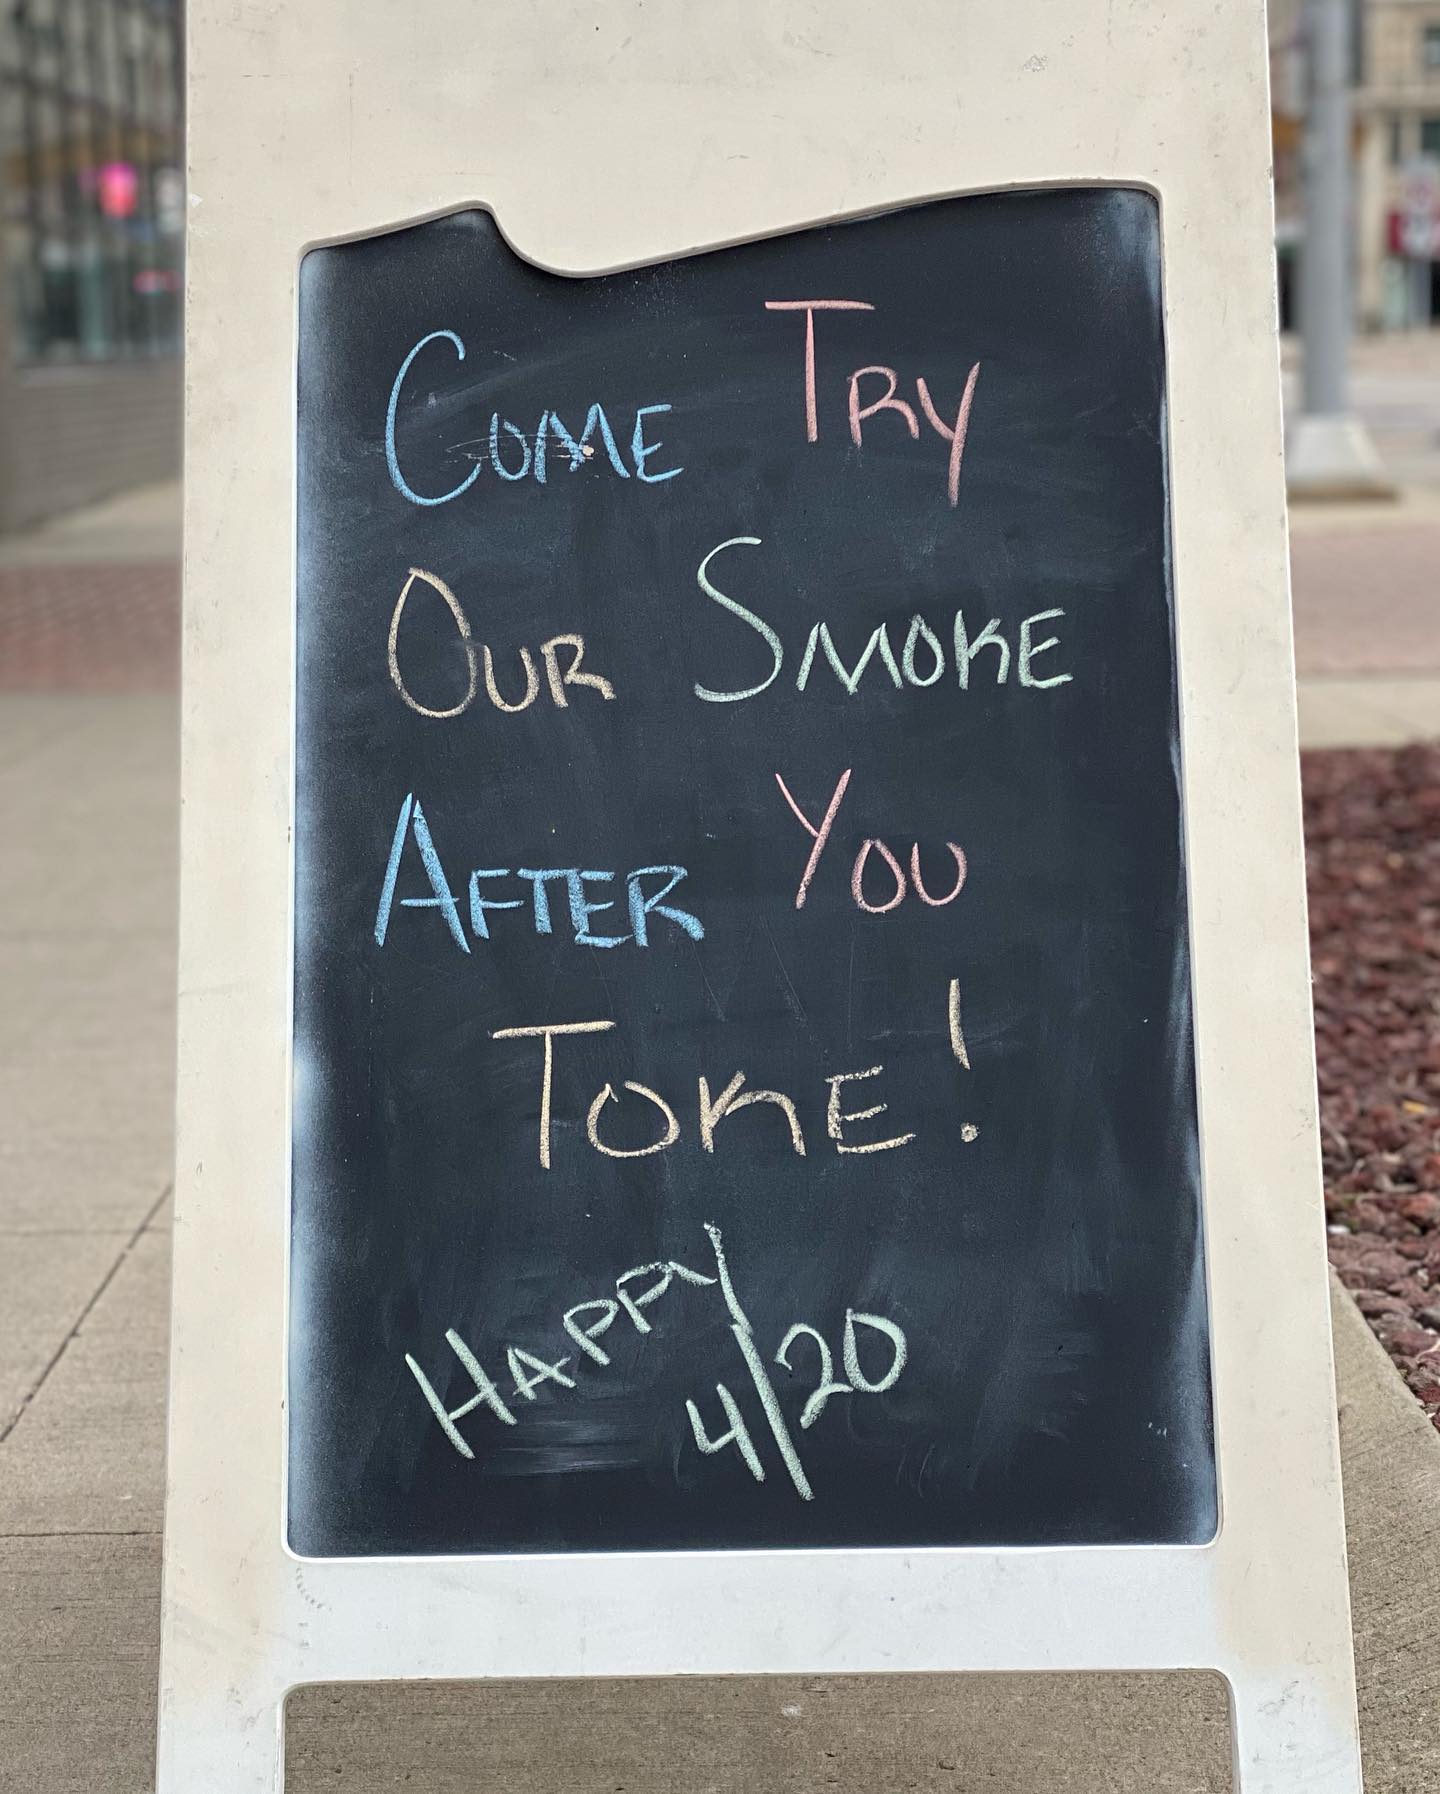 Come Try
Our Smoke
After You
Toke!
Happy
4/20